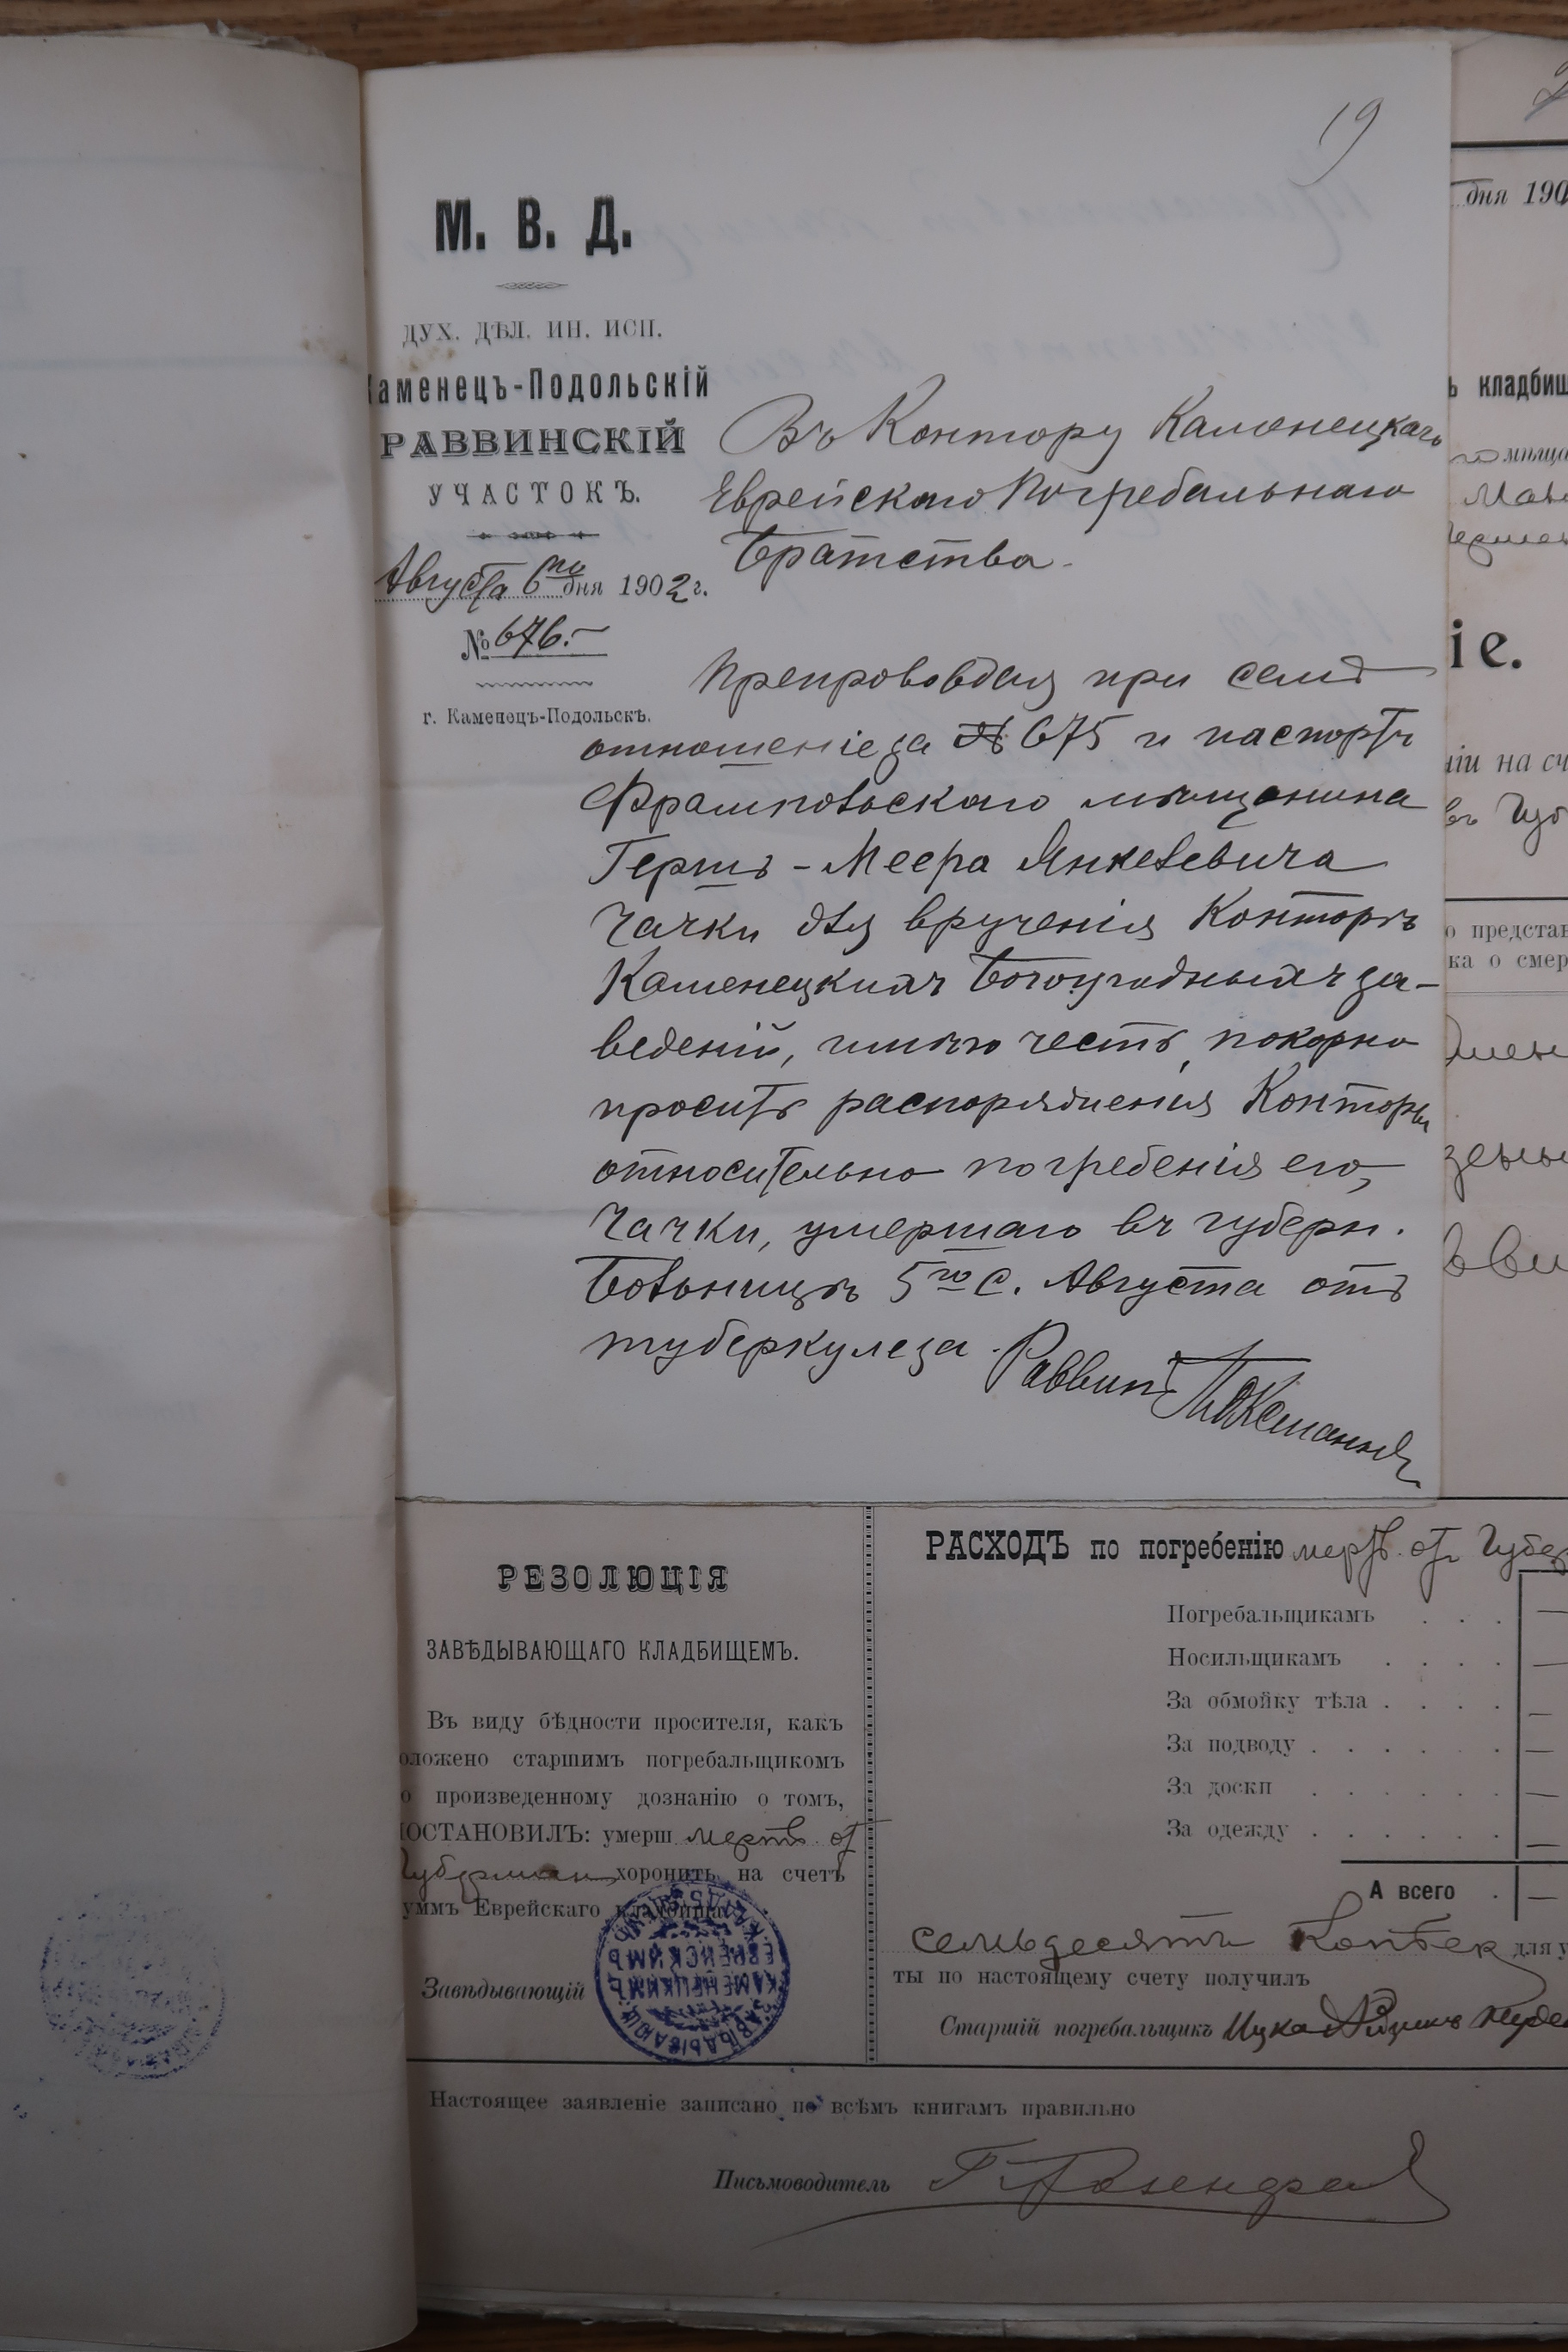 19
М. В. Д.
ДУХ. ДѢЛ. ИН. ИСП.
Каменецъ-Подольскій
РАВВИНСКІЙ
УЧАСТОКЪ.
Августа 6го дня 1902 г.
№ 676.-
г. Каменецъ-Подольскъ.
Въ Контору Каменецкаго
Еврейскаго Погребальнаго
Братства.
Препровождая при семъ
отношеніе за № 675 и паспортъ
Франковскаго мѣщанина
Гершъ-Меера Янкелевича
Чачки для врученія Конторѣ
Каменецкихъ Богоугодныхъ за-
веденій, имѣю честь покорно
просить распоряженія Конторы
относительно погребенія его,
Чачки, умершаго въ губерн.
Больницѣ 5го с. Августа отъ
туберкулеза.
Раввинъ
дня 190
ъ кладбищ
мѣща
іе.
ніи на сч
въ Губ
о представ
ка о смер
РЕЗОЛЮЦІЯ
ЗАВѢДЫВАЮЩАГО КЛАДБИЩЕМЪ.
Въ виду бѣдности просителя, какъ
оложено старшимъ погребальщикомъ
о произведенному дознанію о томъ,
ПОСТАНОВИЛЪ: умерш мертв. от
Губерман хоронить на счетъ
уммъ Еврейскаго кладбища.
Завѣдывающій
ЗАВѢДЫВАЮЩІЙ
КАМЕНЕЦКИМЪ
ЕВРЕЙСКИМЪ
КЛАДБИЩЕМЪ
РАСХОДЪ по погребенію мертв. от Губер
Погребальщикамъ . . . —
Носильщикамъ . . . . —
За обмойку тѣла . . . . —
За подводу . . . . . . —
За доски . . . . . . —
За одежду . . . . . . —
А всего . —
семьдесятъ Копѣек для у
ты по настоящему счету получилъ
Старшій погребальщикъ Ицко Айзикъ
Настоящее заявленіе записано по всѣмъ книгамъ правильно
Письмоводитель